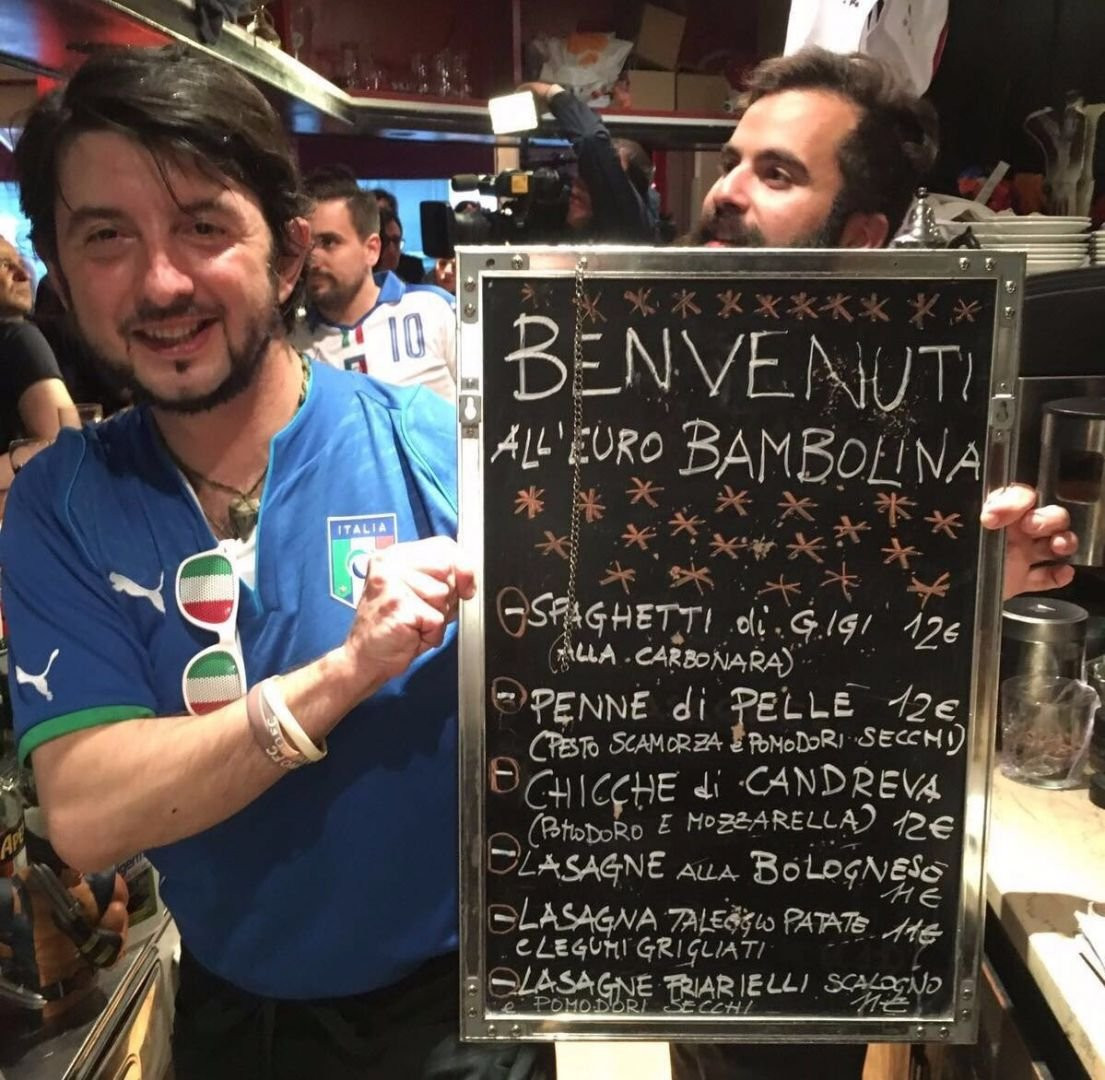 BENVENUTI
ALL'EURO BAMBOLINA
- SPAGHETTI di GIGI 12€
(ALLA CARBONARA)
- PENNE di PELLE 12€
(PESTO SCAMORZA e POMODORI SECCHI)
- CHICCHE di CANDREVA
(POMODORO E MOZZARELLA) 12€
- LASAGNE ALLA BOLOGNESE
11€
- LASAGNA TALEGGIO PATATE 11€
E LEGUMI GRIGLIATI
- LASAGNE FRIARIELLI SCALOGNO
e POMODORI SECCHI 11€
ITALIA
10